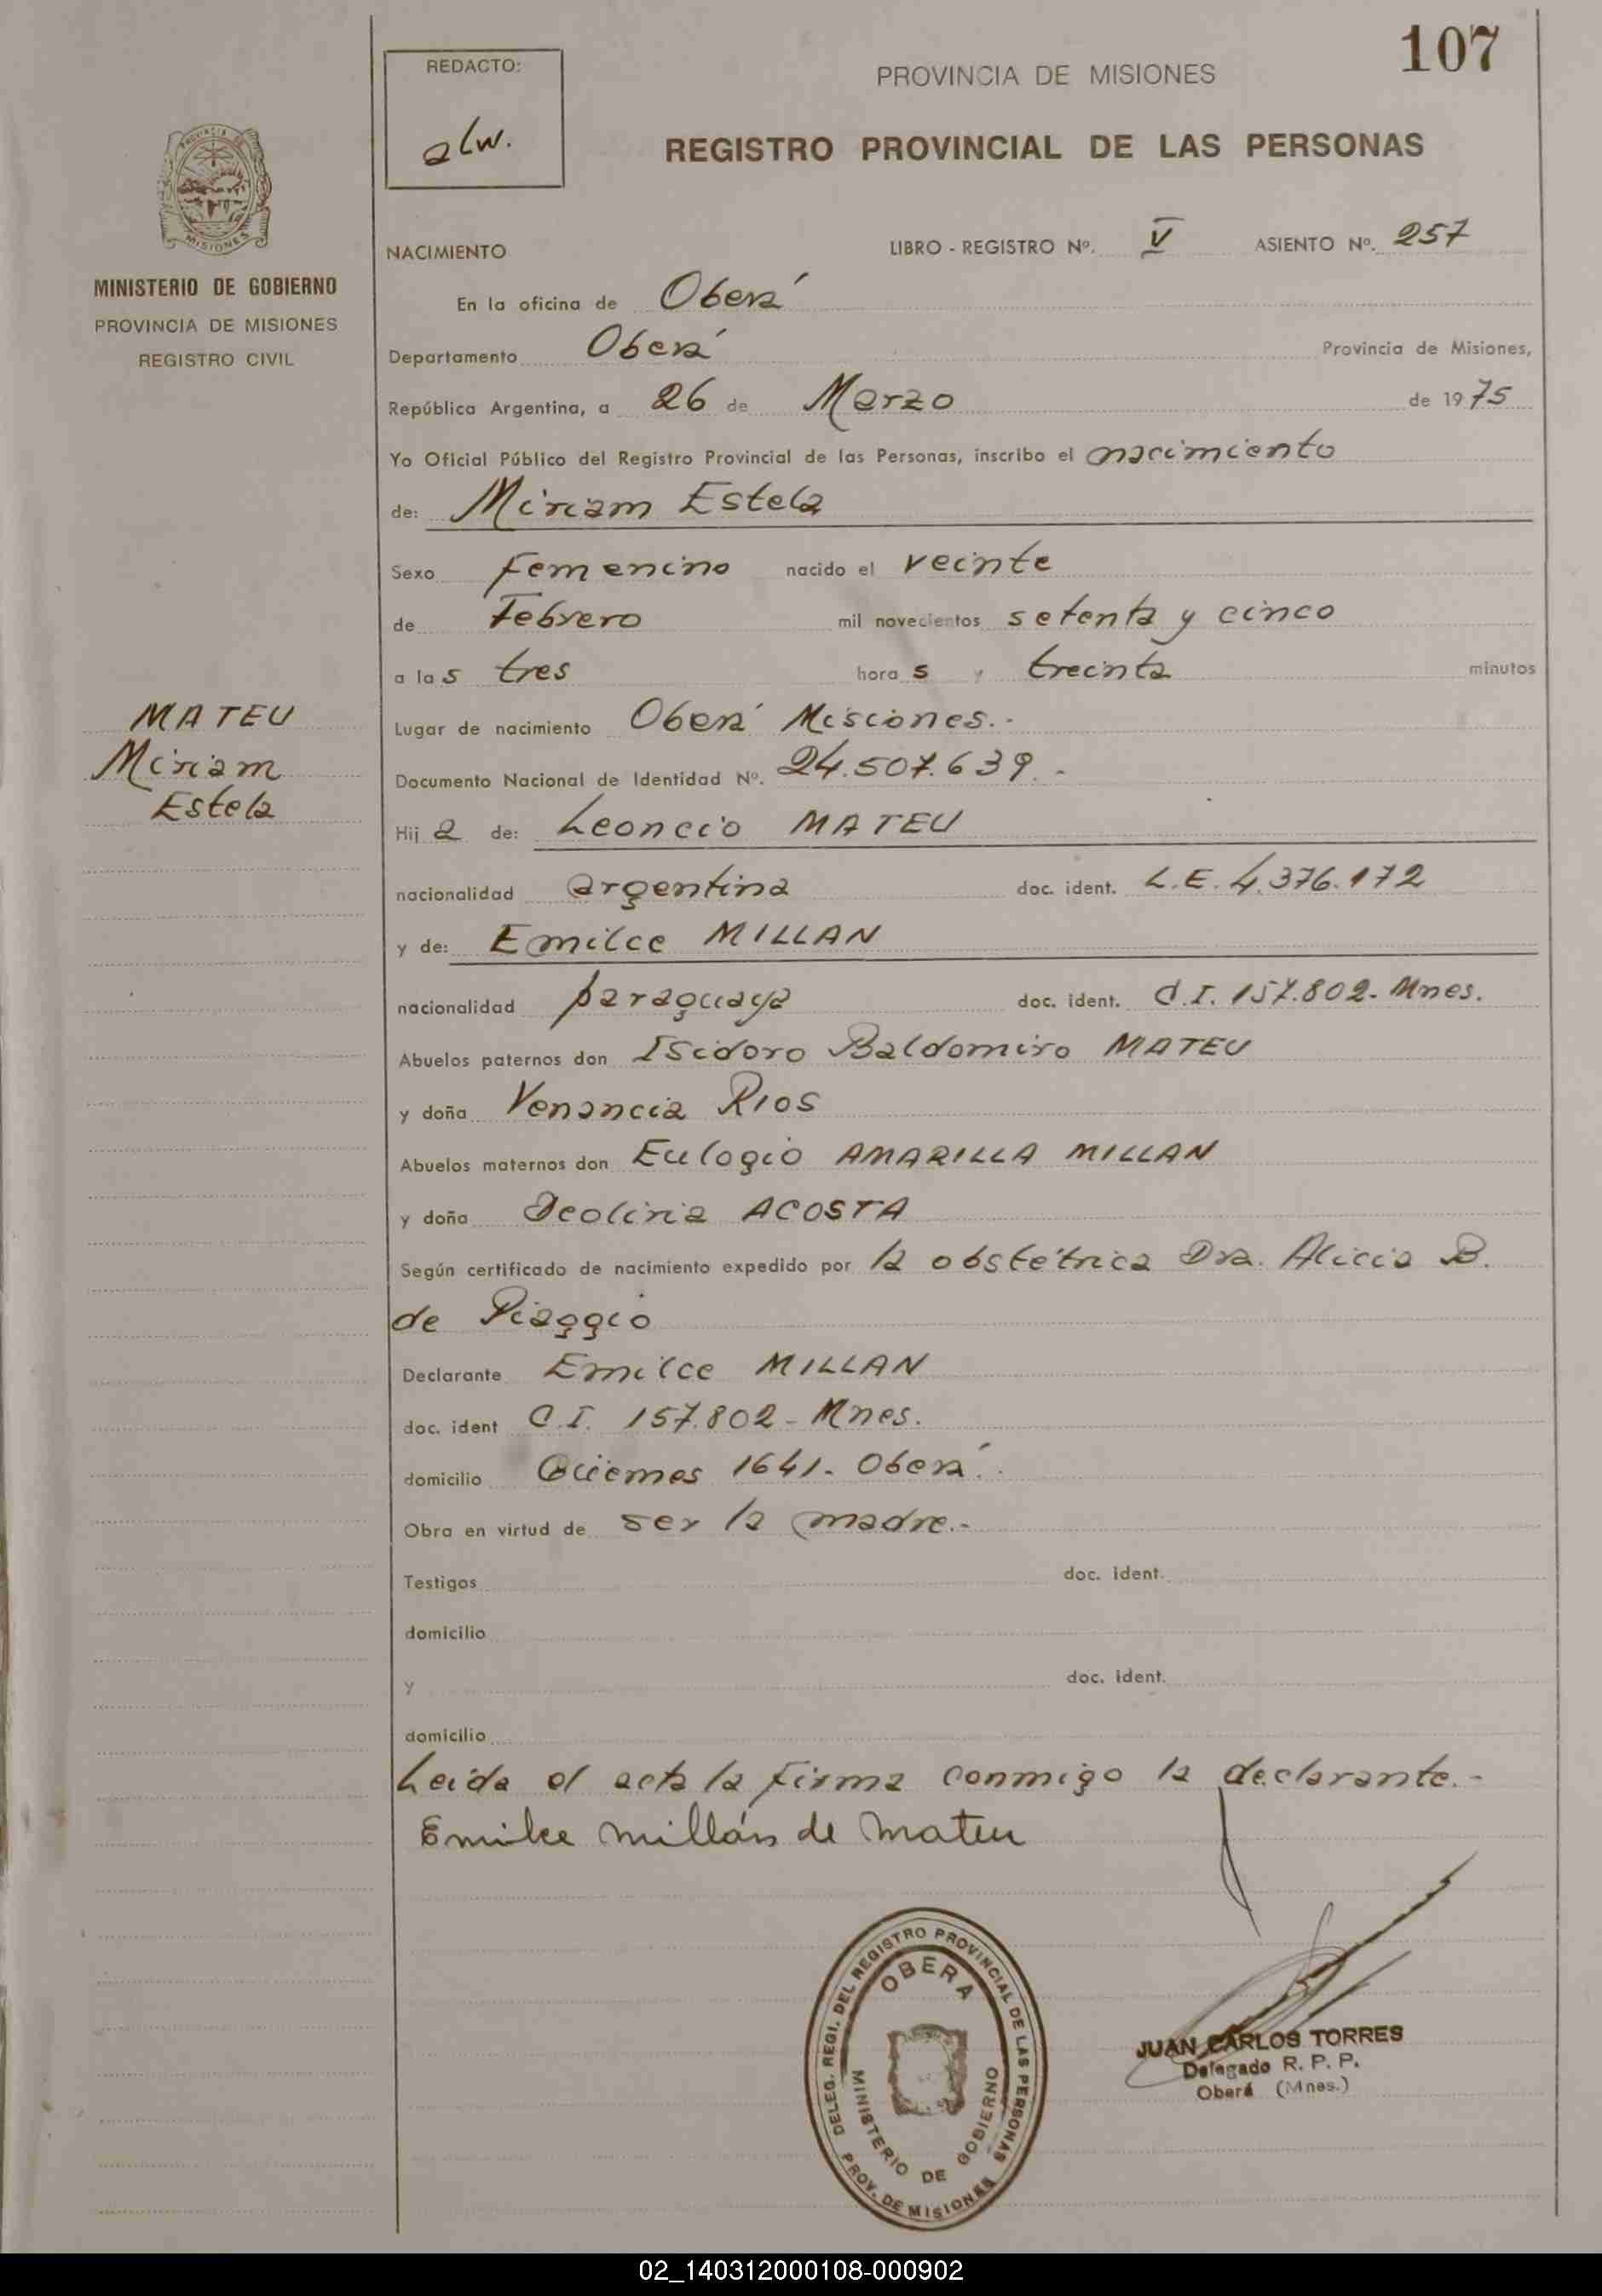 107
REDACTO:
alw.
PROVINCIA DE MISIONES
REGISTRO PROVINCIAL DE LAS PERSONAS
PROVINCIA DE
MISIONES
MINISTERIO DE GOBIERNO
PROVINCIA DE MISIONES
REGISTRO CIVIL
NACIMIENTO LIBRO - REGISTRO Nº. V ASIENTO Nº. 257
En la oficina de Oberá
Departamento Oberá Provincia de Misiones,
República Argentina, a 26 de Marzo de 1975
Yo Oficial Público del Registro Provincial de las Personas, inscribo el nacimiento
de: Miriam Estela
Sexo Femenino nacido el veinte
de Febrero mil novecientos setenta y cinco
a las tres horas y treinta minutos
MATEU
Miriam
Estela
Lugar de nacimiento Oberá Misiones.-
Documento Nacional de Identidad Nº. 24.507.639.-
Hija de: Leoncio MATEU
nacionalidad argentina doc. ident. L.E. 4.376.172
y de: Emilce MILLAN
nacionalidad paraguaya doc. ident. C.I. 157.802- Mnes.
Abuelos paternos don Isidoro Baldomiro MATEU
y doña Venancia RIOS
Abuelos maternos don Eulogio AMARILLA MILLAN
y doña Deoliria ACOSTA
Según certificado de nacimiento expedido por la obstétrica Dra. Alicia B.
de Piaggio
Declarante Emilce MILLAN
doc. ident C.I. 157.802- Mnes.
domicilio Güemes 1641- Oberá.
Obra en virtud de ser la madre.-
Testigos doc. ident.
domicilio
y doc. ident.
domicilio
Leida el acta la firma conmigo la declarante.-
Emilce Millán de Mateu
DELEG. REGI. DEL REGISTRO PROVINCIAL DE LAS PERSONAS
OBERA
MINISTERIO DE GOBIERNO
PROV. DE MISIONES
JUAN CARLOS TORRES
Delegado R. P. P.
Oberá (Mnes.)
02_140312000108-000902